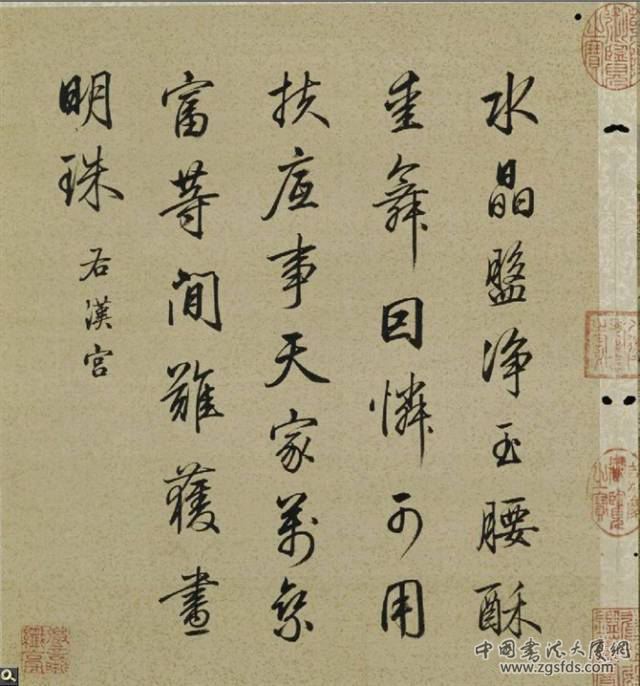 水晶盤淨玉腰酥
舞憐可用
扶底事天家萬乘
富等間難獲畫
明珠
右漢宮
中國書法大厦網
www.zgsfds.com